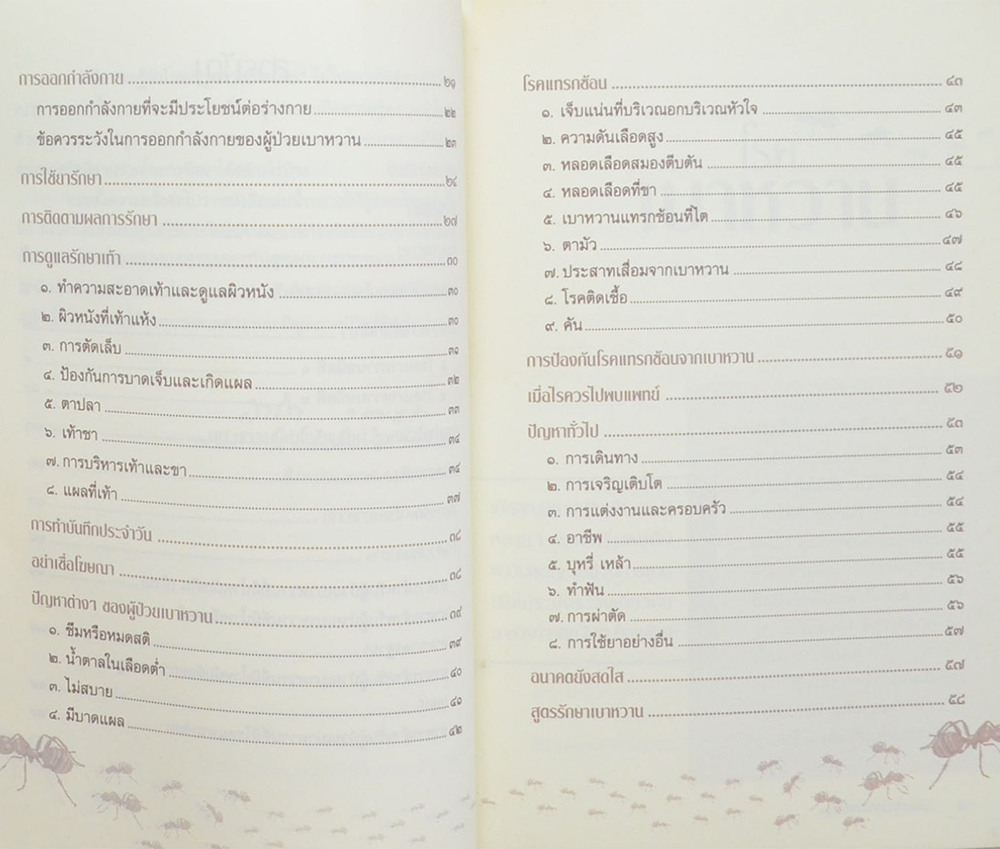 การออกกำลังกาย ๒๑
การออกกำลังกายที่จะมีประโยชน์ต่อร่างกาย ๒๒
ข้อควรระวังในการออกกำลังกายของผู้ป่วยเบาหวาน ๒๓
การใช้ยารักษา ๒๔
การติดตามผลการรักษา ๒๗
การดูแลรักษาเท้า ๓๐
๑. ทำความสะอาดเท้าและดูแลผิวหนัง ๓๐
๒. ผิวหนังที่เท้าแห้ง ๓๐
๓. การตัดเล็บ ๓๑
๔. ป้องกันการบาดเจ็บและเกิดแผล ๓๒
๕. ตาปลา ๓๓
๖. เท้าชา ๓๔
๗. การบริหารเท้าและขา ๓๔
๘. แผลที่เท้า ๓๗
การทำบันทึกประจำวัน ๓๘
อย่าเชื่อโฆษณา ๓๘
ปัญหาต่างๆ ของผู้ป่วยเบาหวาน ๓๙
๑. ซึมหรือหมดสติ ๓๙
๒. น้ำตาลในเลือดต่ำ ๔๐
๓. ไม่สบาย ๔๑
๔. มีบาดแผล ๔๒
โรคแทรกซ้อน ๔๓
๑. เจ็บแน่นที่บริเวณอกบริเวณหัวใจ ๔๓
๒. ความดันเลือดสูง ๔๕
๓. หลอดเลือดสมองตีบตัน ๔๕
๔. หลอดเลือดที่ขา ๔๕
๕. เบาหวานแทรกซ้อนที่ไต ๔๖
๖. ตามัว ๔๗
๗. ประสาทเสื่อมจากเบาหวาน ๔๘
๘. โรคติดเชื้อ ๔๙
๙. คัน ๕๐
การป้องกันโรคแทรกซ้อนจากเบาหวาน ๕๑
เมื่อไรควรไปพบแพทย์ ๕๒
ปัญหาทั่วไป ๕๓
๑. การเดินทาง ๕๓
๒. การเจริญเติบโต ๕๔
๓. การแต่งงานและครอบครัว ๕๔
๔. อาชีพ ๕๕
๕. บุหรี่ เหล้า ๕๕
๖. ทำฟัน ๕๖
๗. การผ่าตัด ๕๖
๘. การใช้ยาอย่างอื่น ๕๗
อนาคตยังสดใส ๕๗
สูตรรักษาเบาหวาน ๕๘